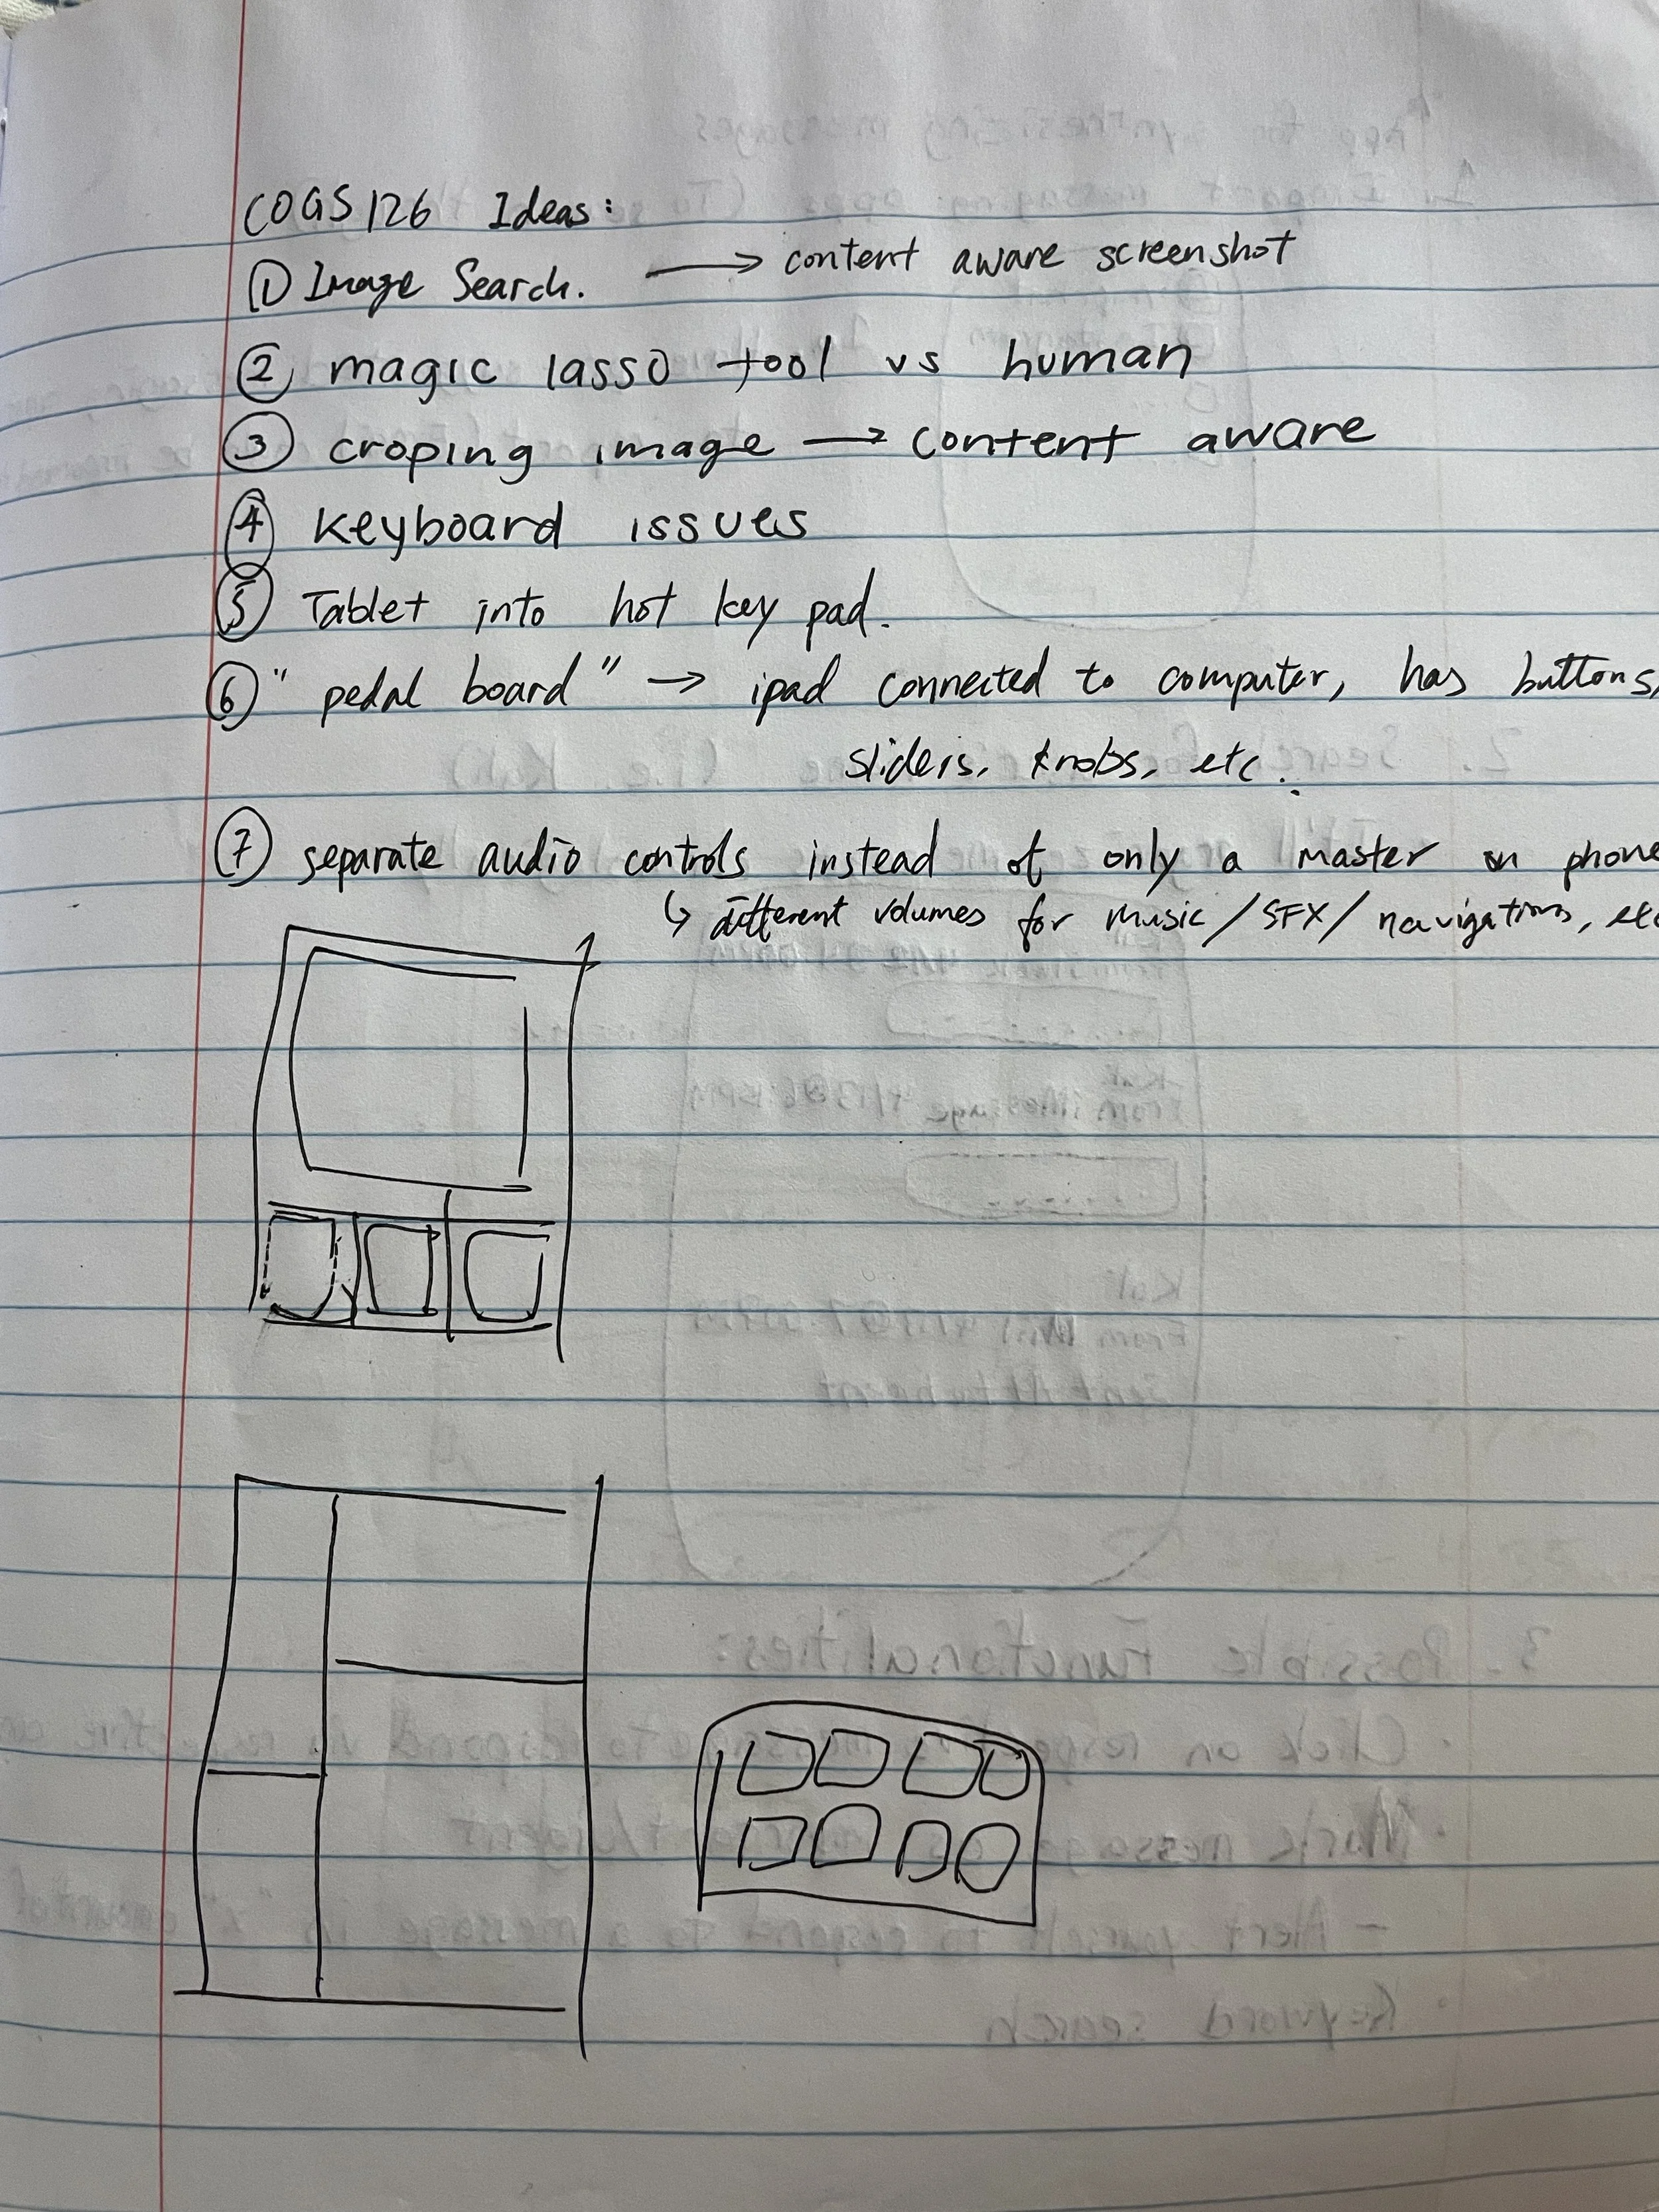 COGS 126 Ideas:
① Image Search. → content aware screenshot
② magic lasso tool vs human
③ croping image → content aware
④ keyboard issues
⑤ Tablet into hot key pad.
⑥ "pedal board" → ipad connected to computer, has buttons,
sliders, knobs, etc.
⑦ separate audio controls instead of only a master on phone
↳ different volumes for music / SFX / navigations, etc